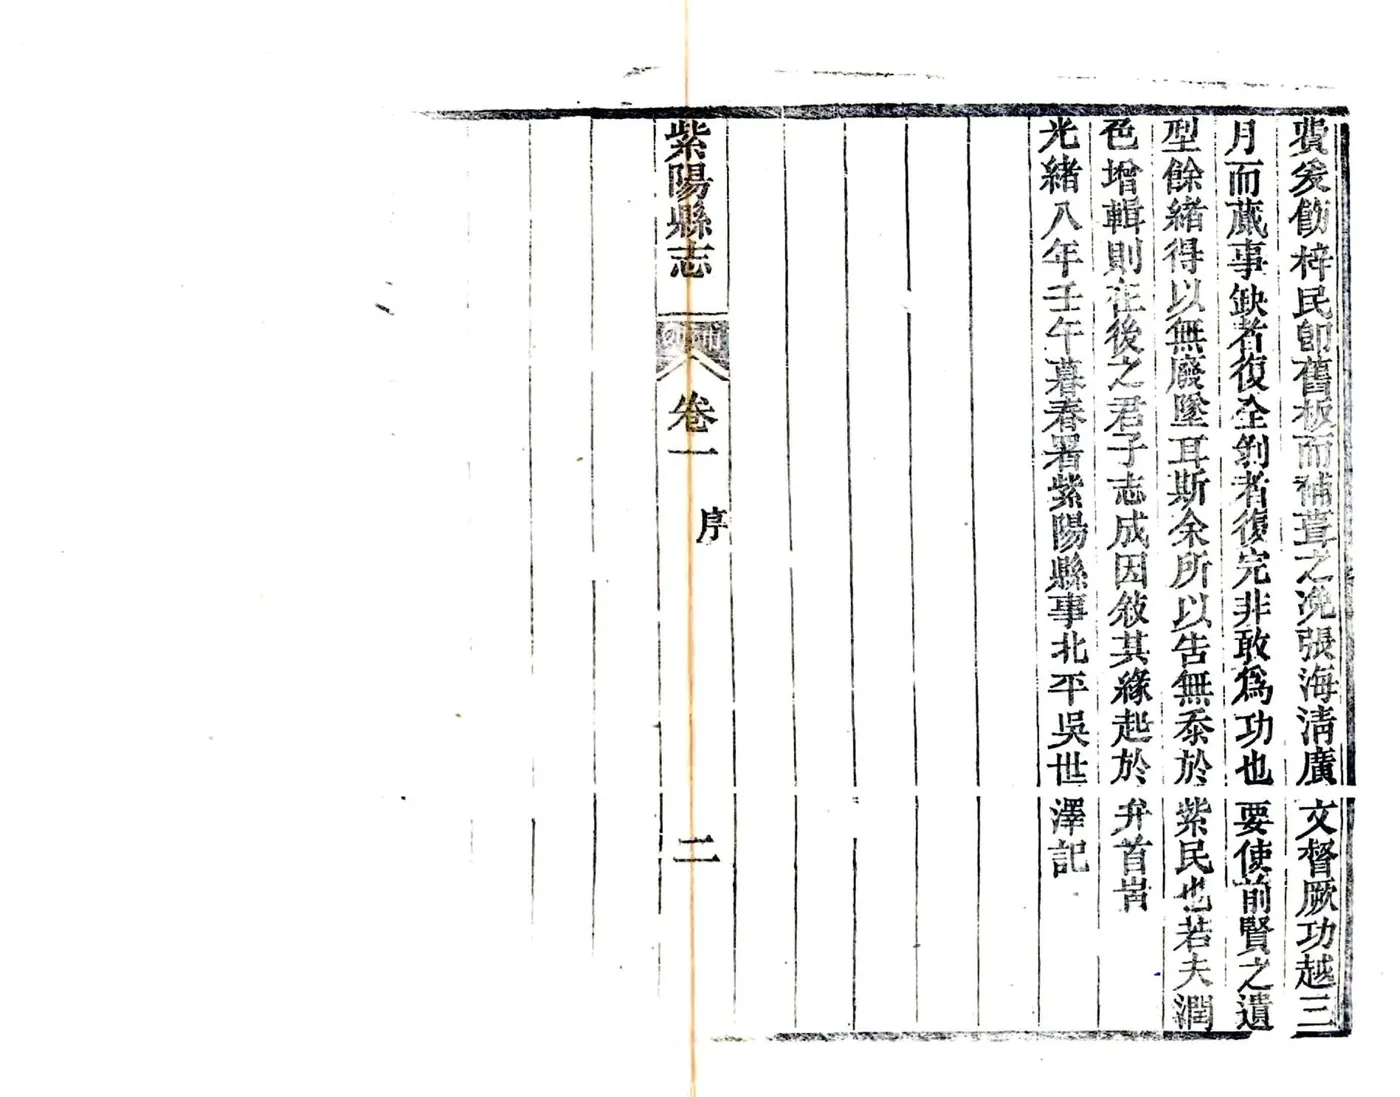 費爰飭梓民卽舊板而補葺之浼張海清廣文督厥功越三
月而蕆事缺者復全剝者復完非敢爲功也要使前賢之遺
型餘緒得以無廢墜耳斯余所以告無忝於紫民也若夫潤
色增輯則在後之君子志成因敍其緣起於弁首旹
光緖八年壬午暮春署紫陽縣事北平吳世澤記
紫陽縣志
卷一
序
二